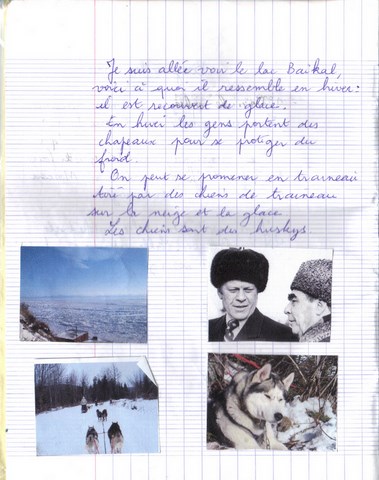 Je suis allée voir le lac Baïkal,
voici à quoi il ressemble en hiver :
il est recouvert de glace.
En hiver les gens portent des
chapeaux pour se protéger du
froid.
On peut se promener en traineau
tiré par des chiens de traineau
sur la neige et la glace
Les chiens sont des huskys